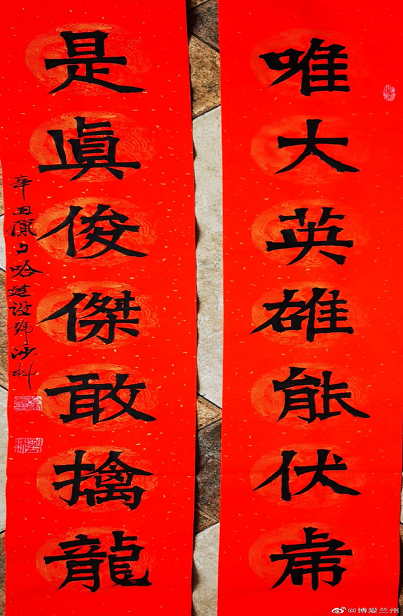 唯大英雄能伏虎
是真俊傑敢擒龍
辛丑
@博爱兰州